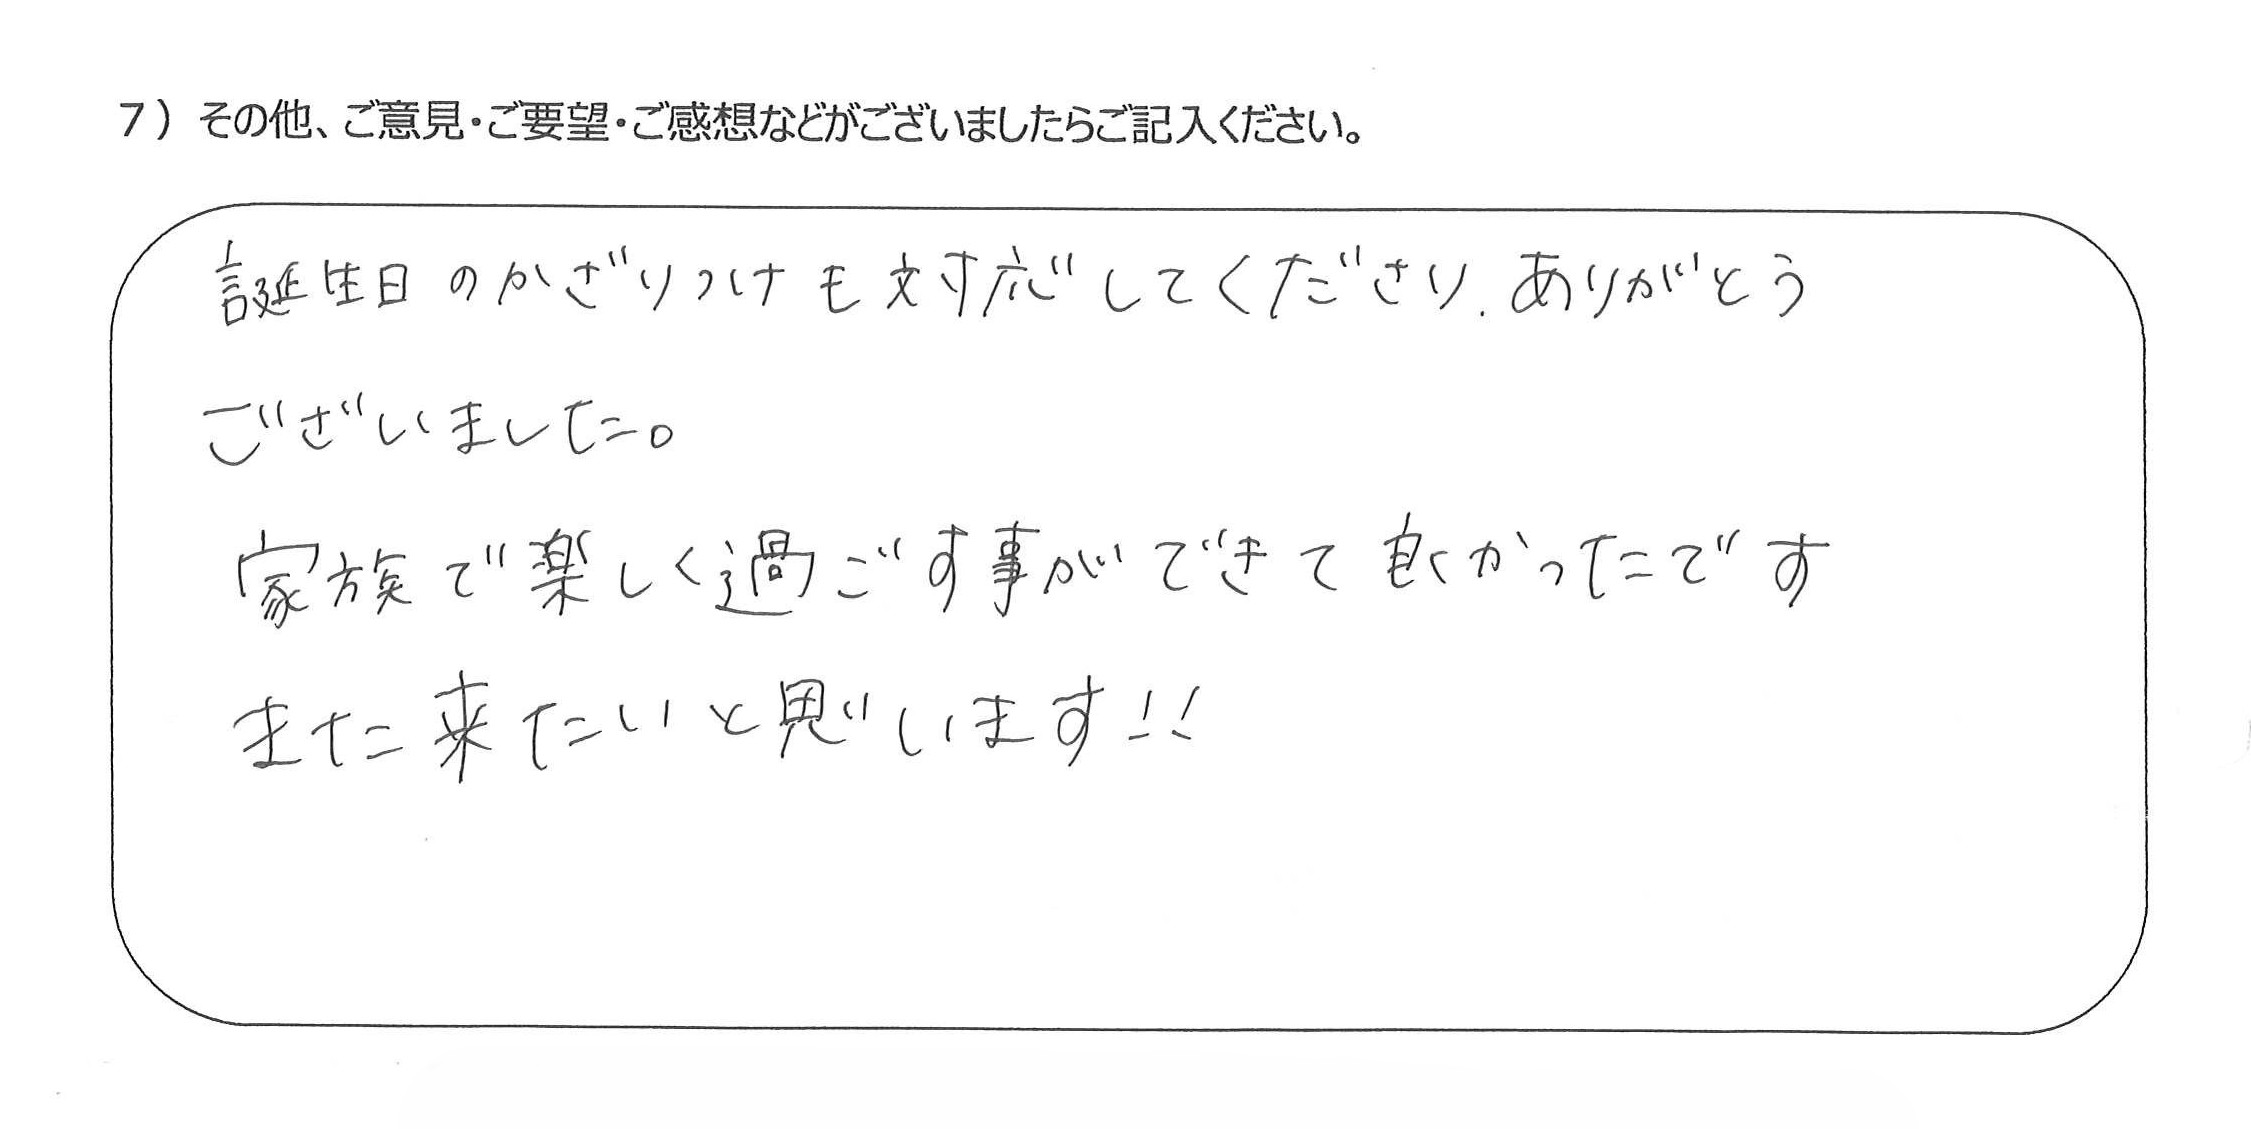 7）その他、ご意見・ご要望・ご感想などがございましたらご記入ください。
誕生日のかざりつけも対応してくださり、ありがとう
ございました。
家族で楽しく過ごす事ができて良かったです
また来たいと思います!!